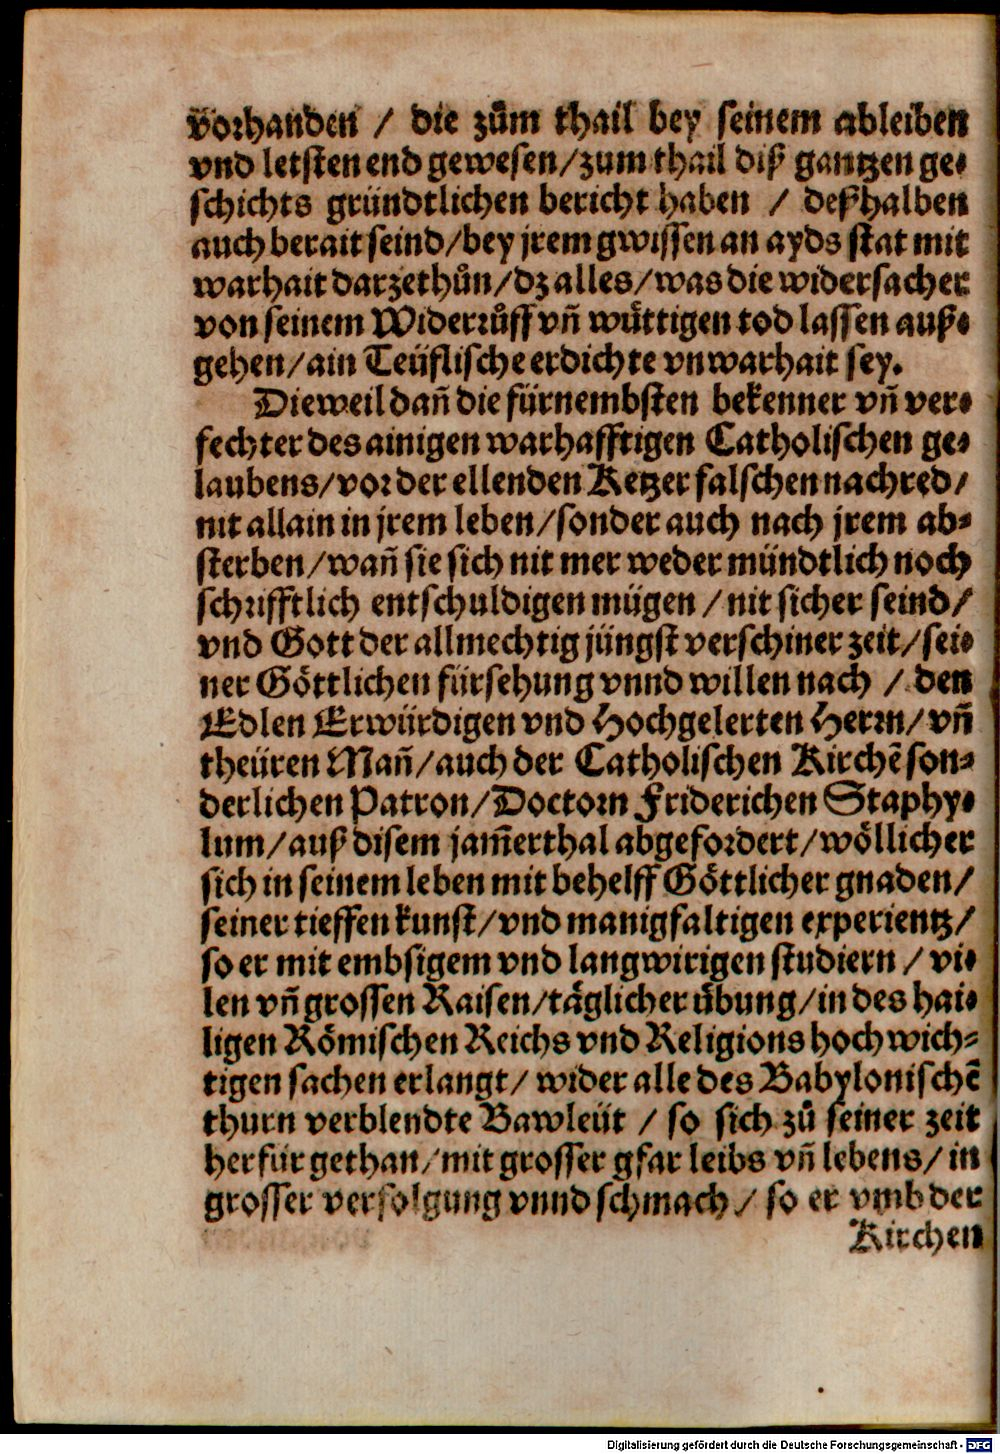 vorhanden / die zům thail bey seinem ableiben
vnd letsten end gewesen/zum thail diß gantzen ge-
schichts gründtlichen bericht haben / deßhalben
auch berait seind/bey jrem gwissen an ayds stat mit
warhait darzethůn/dz alles/was die widersacher
von seinem Widerrůff vñ wüttigen tod lassen auß-
gehen/ain Teüflische erdichte vnwarhait sey.
Dieweil dañ die fürnembsten bekenner vñ ver-
fechter des ainigen warhafftigen Catholischen ge-
laubens/vor der ellenden Ketzer falschen nachred/
nit allain in jrem leben/sonder auch nach jrem ab-
sterben/wañ sie sich nit mer weder mündtlich noch
schrifftlich entschuldigen mügen/nit sicher seind/
vnd Gott der allmechtig jüngst verschiner zeit/sei-
ner Göttlichen fürsehung vnnd willen nach / den
Edlen Erwürdigen vnd Hochgelerten Herrn/vñ
theüren Mañ/auch der Catholischen Kirchē son-
derlichen Patron/Doctorn Friderichen Staphy-
lum/auß disem jam̄erthal abgefordert/wöllicher
sich in seinem leben mit behelff Göttlicher gnaden/
seiner tieffen kunst/vnd manigfaltigen experientz/
so er mit embsigem vnd langwirigen studiern / vi-
len vñ grossen Raisen/täglicher übung/in des hai-
ligen Römischen Reichs vnd Religions hochwich-
tigen sachen erlangt/ wider alle des Babylonischē
thurn verblendte Bawleüt / so sich zů seiner zeit
herfür gethan/mit grosser gfar leibs vñ lebens/in
grosser verfolgung vnnd schmach/ so er vmb der
Kirchen
Digitalisierung gefördert durch die Deutsche Forschungsgemeinschaft - DFG